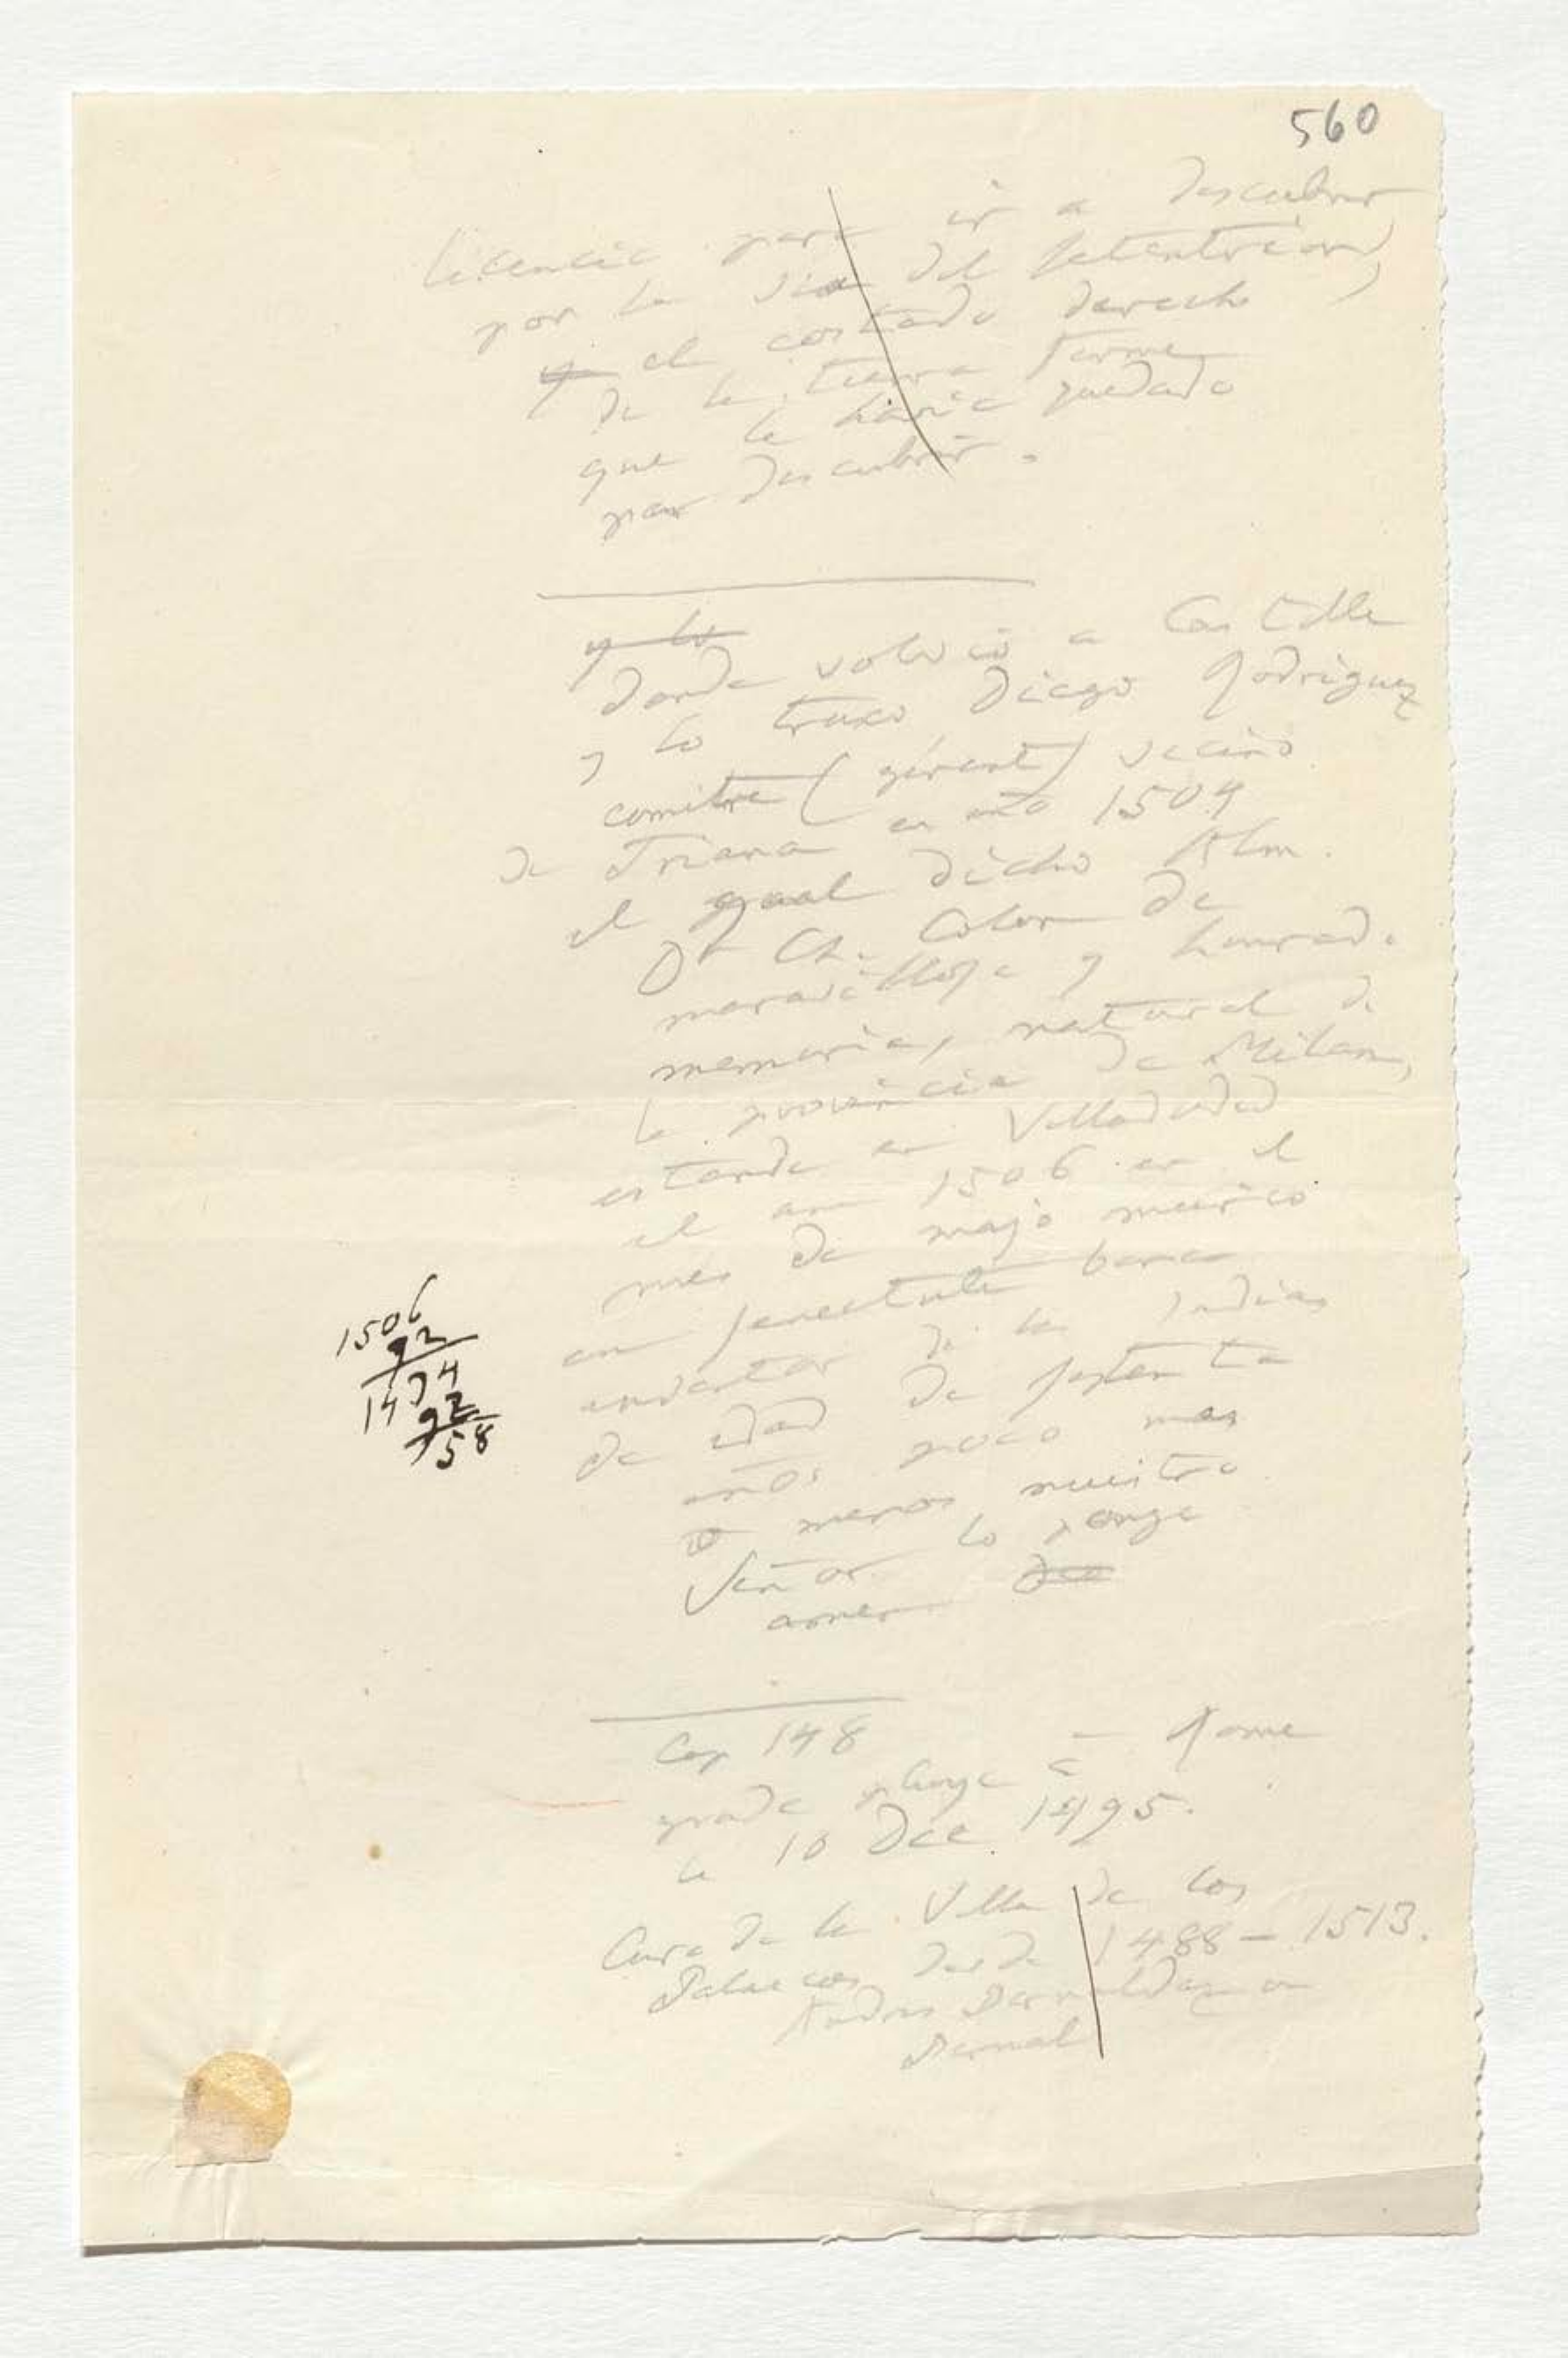 560
licencia para ir a descubrir
por la via del setentrion,
y el costado derecho
de la tierra firme
que le havia quedado
par descubrir.
y lo
donde volvio a Castilla
y lo truxo Diego Rodriguez
comitre (gérant) vecino
de Triana en año 1504
el qual dicho Alm.
Dn Ch. Colon de
maravillosa y honrad.
memoria, natural de
la provincia de Milan,
estando en Valladolid
el an 1506 en el
mes de majo murico
en senectute bona
inventor de las Indias
de edad de setenta
años poco mas
o menos nuestro
Señor lo ponga
amen
1506
1434
58
Cap 148
grade Rome
le 10 Dec 1495.
Cura de la Villa de los
Palacios desde 1488 – 1513.
Andres Bernaldez o
Bernal